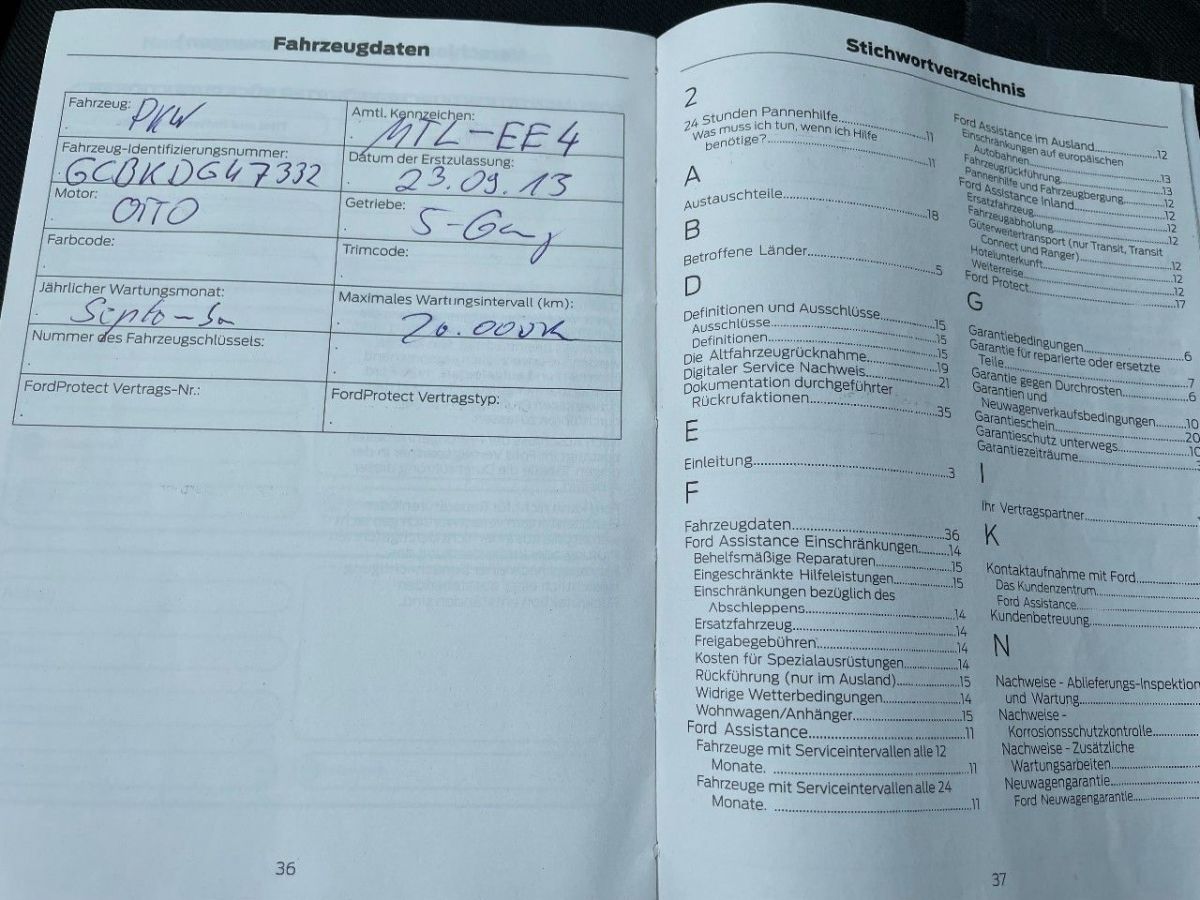 Fahrzeugdaten
Fahrzeug: PKW
Amtl. Kennzeichen: MTL-EE4
Fahrzeug-Identifizierungsnummer: GCBKDG47332
Datum der Erstzulassung: 23.09.13
Motor: OTTO
Getriebe: 5-Gang
Farbcode:
Trimcode:
Jährlicher Wartungsmonat:
Maximales Wartungsintervall (km): 20.000
Nummer des Fahrzeugschlüssels:
FordProtect Vertrags-Nr.:
FordProtect Vertragstyp:
36
Stichwortverzeichnis
2
24 Stunden Pannenhilfe..........11
Was muss ich tun, wenn ich Hilfe
benötige?..........11
A
Austauschteile..........18
B
Betroffene Länder..........5
D
Definitionen und Ausschlüsse..........15
Ausschlüsse..........15
Definitionen..........15
Die Altfahrzeugrücknahme..........19
Digitaler Service Nachweis..........21
Dokumentation durchgeführter
Rückrufaktionen..........35
E
Einleitung..........3
F
Fahrzeugdaten..........36
Ford Assistance Einschränkungen..........14
Behelfsmäßige Reparaturen..........15
Eingeschränkte Hilfeleistungen..........15
Einschränkungen bezüglich des
Abschleppens..........14
Ersatzfahrzeug..........14
Freigabegebühren..........14
Kosten für Spezialausrüstungen..........14
Rückführung (nur im Ausland)..........15
Widrige Wetterbedingungen..........14
Wohnwagen/Anhänger..........15
Ford Assistance..........11
Fahrzeuge mit Serviceintervallen alle 12
Monate. ..........11
Fahrzeuge mit Serviceintervallen alle 24
Monate. ..........11
Ford Assistance im Ausland..........12
Einschränkungen auf europäischen
Autobahnen..........13
Fahrzeugrückführung..........13
Pannenhilfe und Fahrzeugbergung..........12
Ford Assistance Inland..........12
Ersatzfahrzeug..........12
Fahrzeugabholung..........12
Güterweitertransport (nur Transit, Transit
Connect und Ranger)..........12
Hotelunterkunft..........12
Weiterreise..........12
Ford Protect..........17
G
Garantiebedingungen..........6
Garantie für reparierte oder ersetzte
Teile..........7
Garantie gegen Durchrosten..........6
Garantien und
Neuwagenverkaufsbedingungen..........10
Garantieschein..........20
Garantieschutz unterwegs..........10
Garantiezeiträume..........
I
Ihr Vertragspartner..........
K
Kontaktaufnahme mit Ford..........
Das Kundenzentrum..........
Ford Assistance..........
Kundenbetreuung..........
N
Nachweise - Ablieferungs-Inspektion
und Wartung..........
Nachweise -
Korrosionsschutzkontrolle..........
Nachweise - Zusätzliche
Wartungsarbeiten..........
Neuwagengarantie..........
Ford Neuwagengarantie..........
37